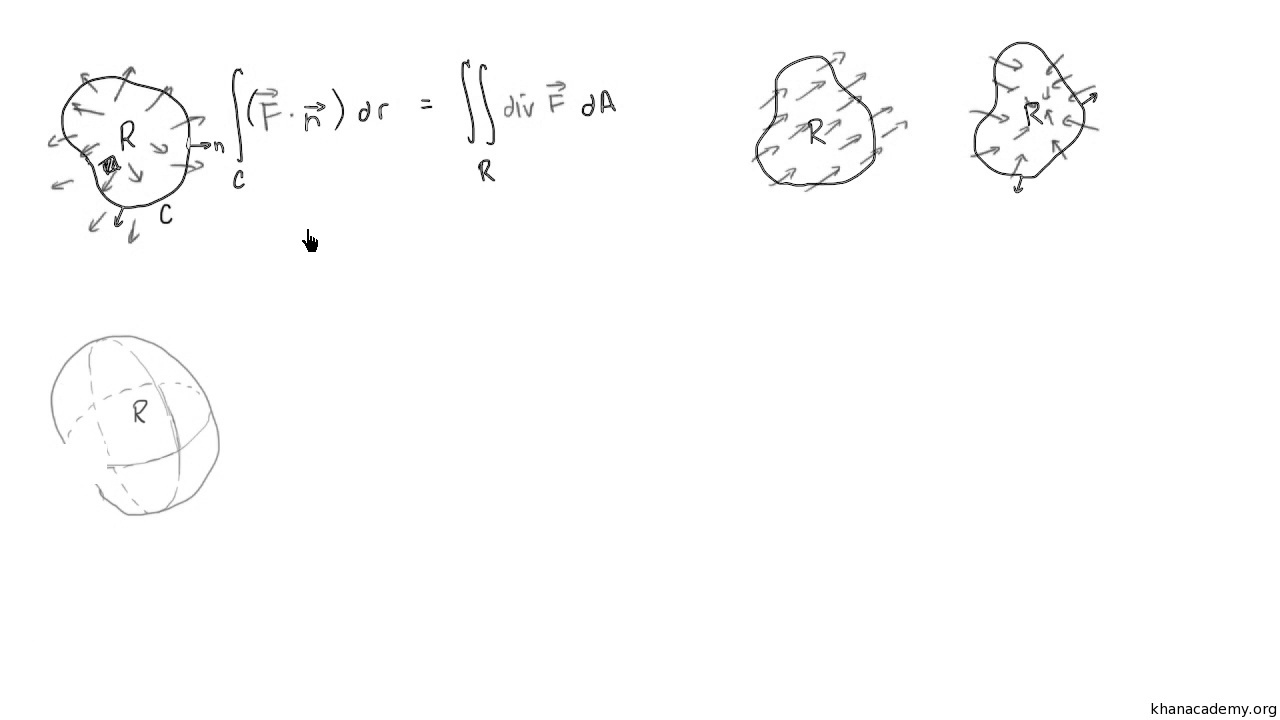 R n C
∫ (F⃗ · n⃗) dr = ∬ div F⃗ dA
C R
R
R
R
khanacademy.org